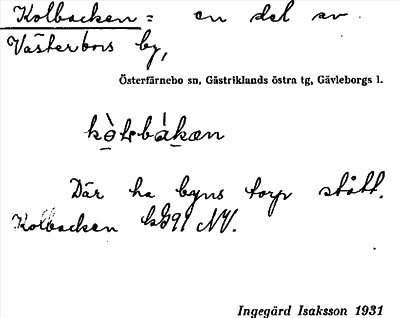 Kolbacken = en del av
Västerbors by,
Österfärnebo sn, Gästriklands östra tg, Gävleborgs l.
kòlbákæn
Där ha byns torp stått.
Kolbacken kB91 NV.
Ingegärd Isaksson 1931